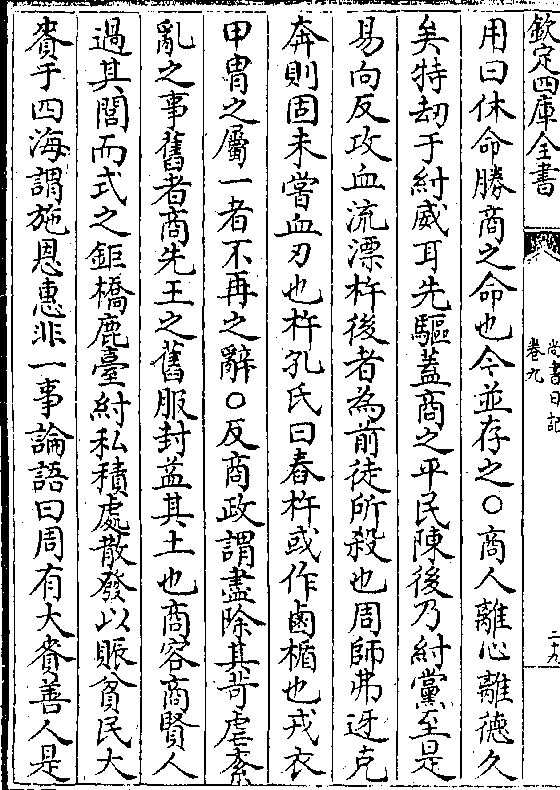 欽定四庫全書
尚書日記
卷九
二十九
用曰休命勝商之命也今並存之○商人離心離德久
矣特刼于紂威耳先驅蓋商之平民陳後乃紂黨至是
易向反攻血流漂杵後者為前徒所殺也周師弗迓克
奔則固未嘗血刃也杵孔氏曰舂杵或作鹵楯也戎衣
甲冑之屬一者不再之辭○反商政謂盡除其苛虐紊
亂之事舊者商先王之舊服封益其土也商容商賢人
過其閭而式之鉅橋鹿臺紂私積處散發以賑貧民大
賚于四海謂施恩惠非一事論語曰周有大賚善人是